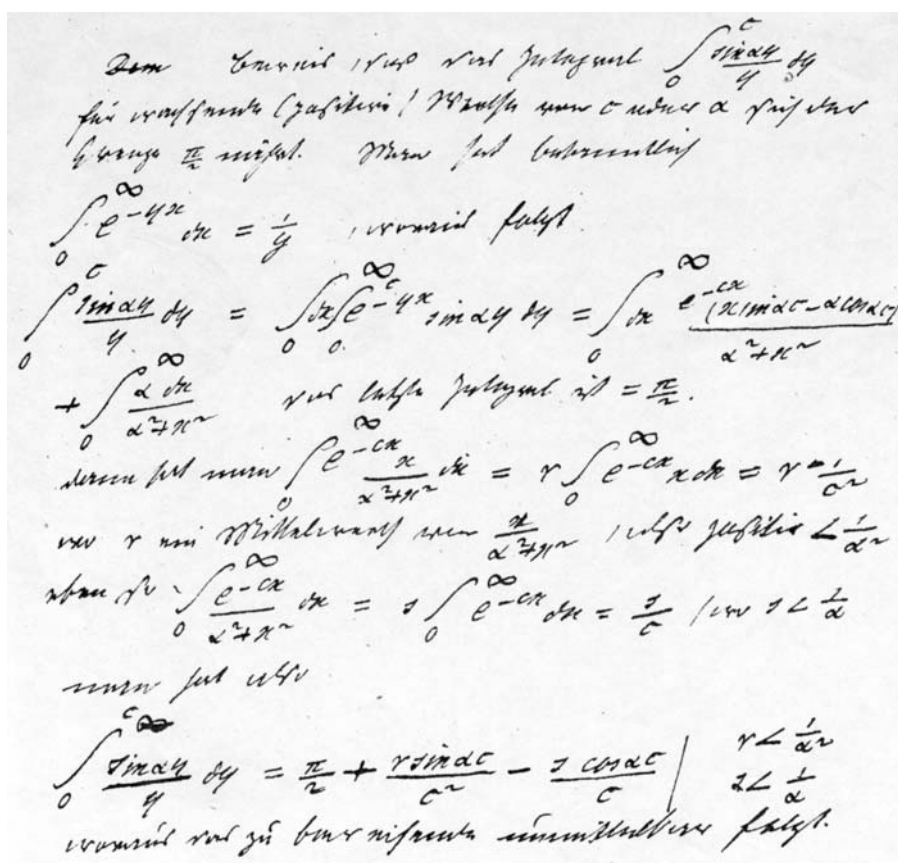 Beweis, daß das Integral ∫₀ᶜ sin αy / y dy
für wachsende (positive) Werthe von c oder α sich der
Grenze π/2 nähert. Man hat bekanntlich
∫₀^∞ e^{-yx} dx = 1/y, woraus folgt
∫₀ᶜ sin αy / y dy = ∫₀^∞ dx ∫₀ᶜ e^{-yx} sin αy dy = ∫₀^∞ dx e^{-cx} (x sin αc - α cos αc) / (α²+x²)
+ ∫₀^∞ α dx / (α²+x²) das letzte Integral ist = π/2.
dann hat man ∫₀^∞ e^{-cx} x / (α²+x²) dx = r ∫₀^∞ e^{-cx} x dx = r · 1/c²
wo r ein Mittelwerth von x / (α²+x²), also positiv < 1/α²
eben so ∫₀^∞ e^{-cx} / (α²+x²) dx = s ∫₀^∞ e^{-cx} dx = s/c, wo s < 1/α
man hat also
∫₀ᶜ sin αy / y dy = π/2 + r sin αc / c² - s cos αc / c | r < 1/α²
s < 1/α
woraus das zu beweisende unmittelbar folgt.